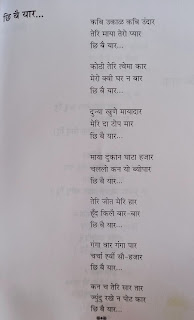 छि बै यार...
कबि उकाळ कबि उंदार
तेरि माया तेरो प्यार
छि बै यार...
कोठी तेरि त्वेमा कार
मेरो क्वी घर न बार
छि बै यार...
दुन्या खुणे मायादार
मेरि दा टोप मार
छि बै यार...
माया दुकान घाटा हजार
चाललो कन यो ब्योपार
छि बै यार...
तेरि जीत मेरि हार
हूंद किलै बार-बार
छि बै यार...
गंगा वार गंगा पार
चर्चा हमरी सौ-हजार
छि बै यार...
कन च तेरि सार तार
ज्यूंदु रखे न चोट कार
छि बै यार...